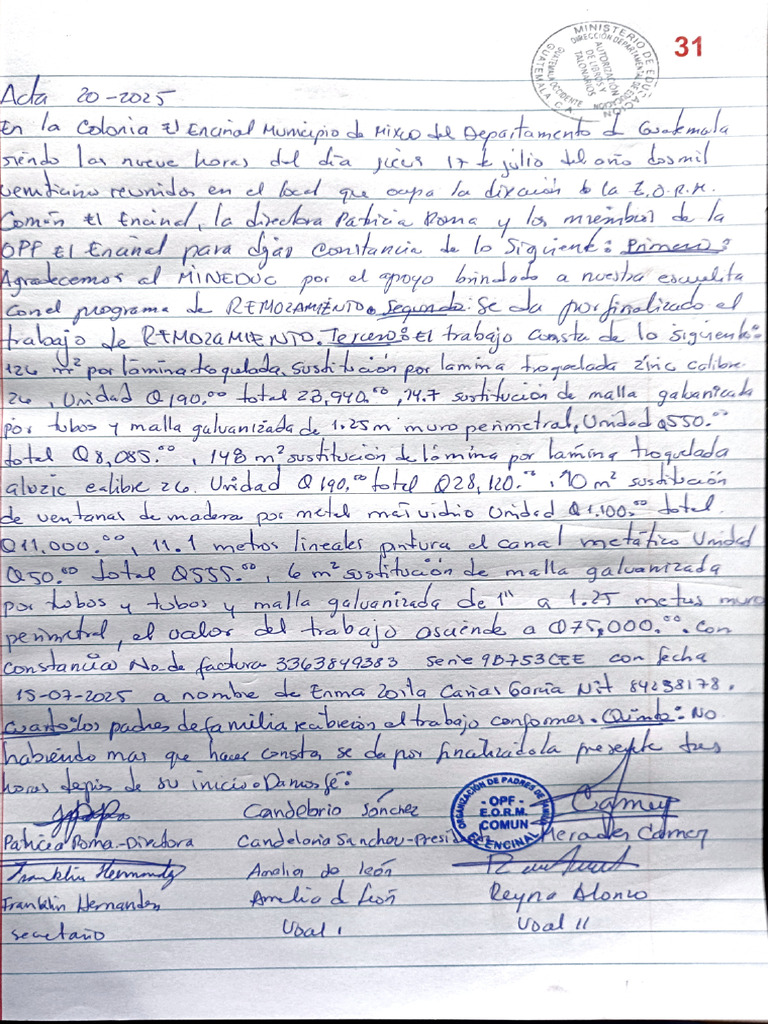 31
MINISTERIO DE EDUCACIÓN
DIRECCIÓN DEPARTAMENTAL DE EDUCACIÓN
GUATEMALA OCCIDENTE
AUTORIZACIÓN
DE LIBROS Y
TALONARIOS
GUATEMALA C.A.
Acta 20-2025
En la Colonia El Encinal Municipio de Mixco del Departamento d Guatemala
siendo las nueve horas del día jueves 17 de julio del año dosmil
veinticino reunidos en el local que ocupa la dirección de la E.O.R.M.
Común El Encinal, la directora Patricia Roma y los miembros de la
OPF El Encinal para dejar Constancia de lo Siguiente: Primero:
Agradecemos al MINEDUC por el apoyo brindado a nuestra escuelita
con el programa de REMOZAMIENTO. Segundo: Se da por finalizado el
trabajo de REMOZAMIENTO. Tercero: El trabajo consta de lo siguiente:
126 m² por lámina troquelada, sustitución por lamina troquelada zinc calibre
26, Unidad Q190.00 total 23,940.00, 14.7 sustitución de malla galvanizada
por tubos y malla galvanizada de 1.25 m muro perimetral, Unidad Q550.00
total Q8,085.00, 148 m² sustitución de lámina por lamina troquelada
aluzic calibre 26. Unidad Q190.00 total Q28,120.00, 10 m² sustitución
de ventanas de madera por metal mas vidrio Unidad Q1.100.00 total
Q11.000.00, 11.1 metros lineales pintura el canal metático Unidad
Q50.00 total Q555.00, 6 m² sustitución de malla galvanizada
por tubos y tubos y malla galvanizada de 1" a 1.25 metros muro
perimetral, el valor del trabajo asciende a Q75,000.00. Con
constancia No. de factura 3363849383 serie 9B753CEE con fecha
15-07-2025 a nombre de Enma Zoila Cañas García Nit 84238178.
Cuarto: los padres de familia recibieron el trabajo conformes. Quinto: No
habiendo mas que hacer constar, se da por finalizada la presente tres
horas depues de su inicio. Damos fé:
Candebrio Sánchez
Camey
Patricia Roma-Directora Candeloria Sanchez-Presid Mercedes Camey
ORGANIZACIÓN DE PADRES DE FAMILIA
- OPF -
E.O.R.M.
COMUN
EL ENCINAL
Franklin Hernandez Amalia de león
Franklin Hernandez Amelia d León Reyna Alonzo
secretario Voal I Voal II